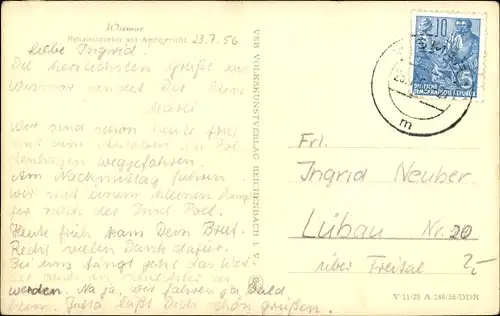 Wismar
Renaissancetor am Amtsgericht 23.7.56
Liebe Ingrid!
Die herzlichsten Grüße aus
Wismar sendet Dir Deine
Wir sind schon heute früh
mit dem
weggefahren.
Am Nachmittag fahren
wir mit einem kleinen Damp
fer nach der Insel Poel.
Heute früh kam Dein Brief.
Recht vielen Dank dafür.
Bei uns fängt jetzt das Wet
ter auch an schlechter zu
werden. Na ja, wir fahren ja bald
heim. Jutta läßt Dich schön grüßen.
VEB VOLKSKUNSTVERLAG REICHENBACH I. V.
10
DEUTSCHE
DEMOKRATISCHE REPUBLIK
m
Frl.
Ingrid Neuber
Lübau Nr. 20
über Freital
V/11/28 A 248/55/DDR